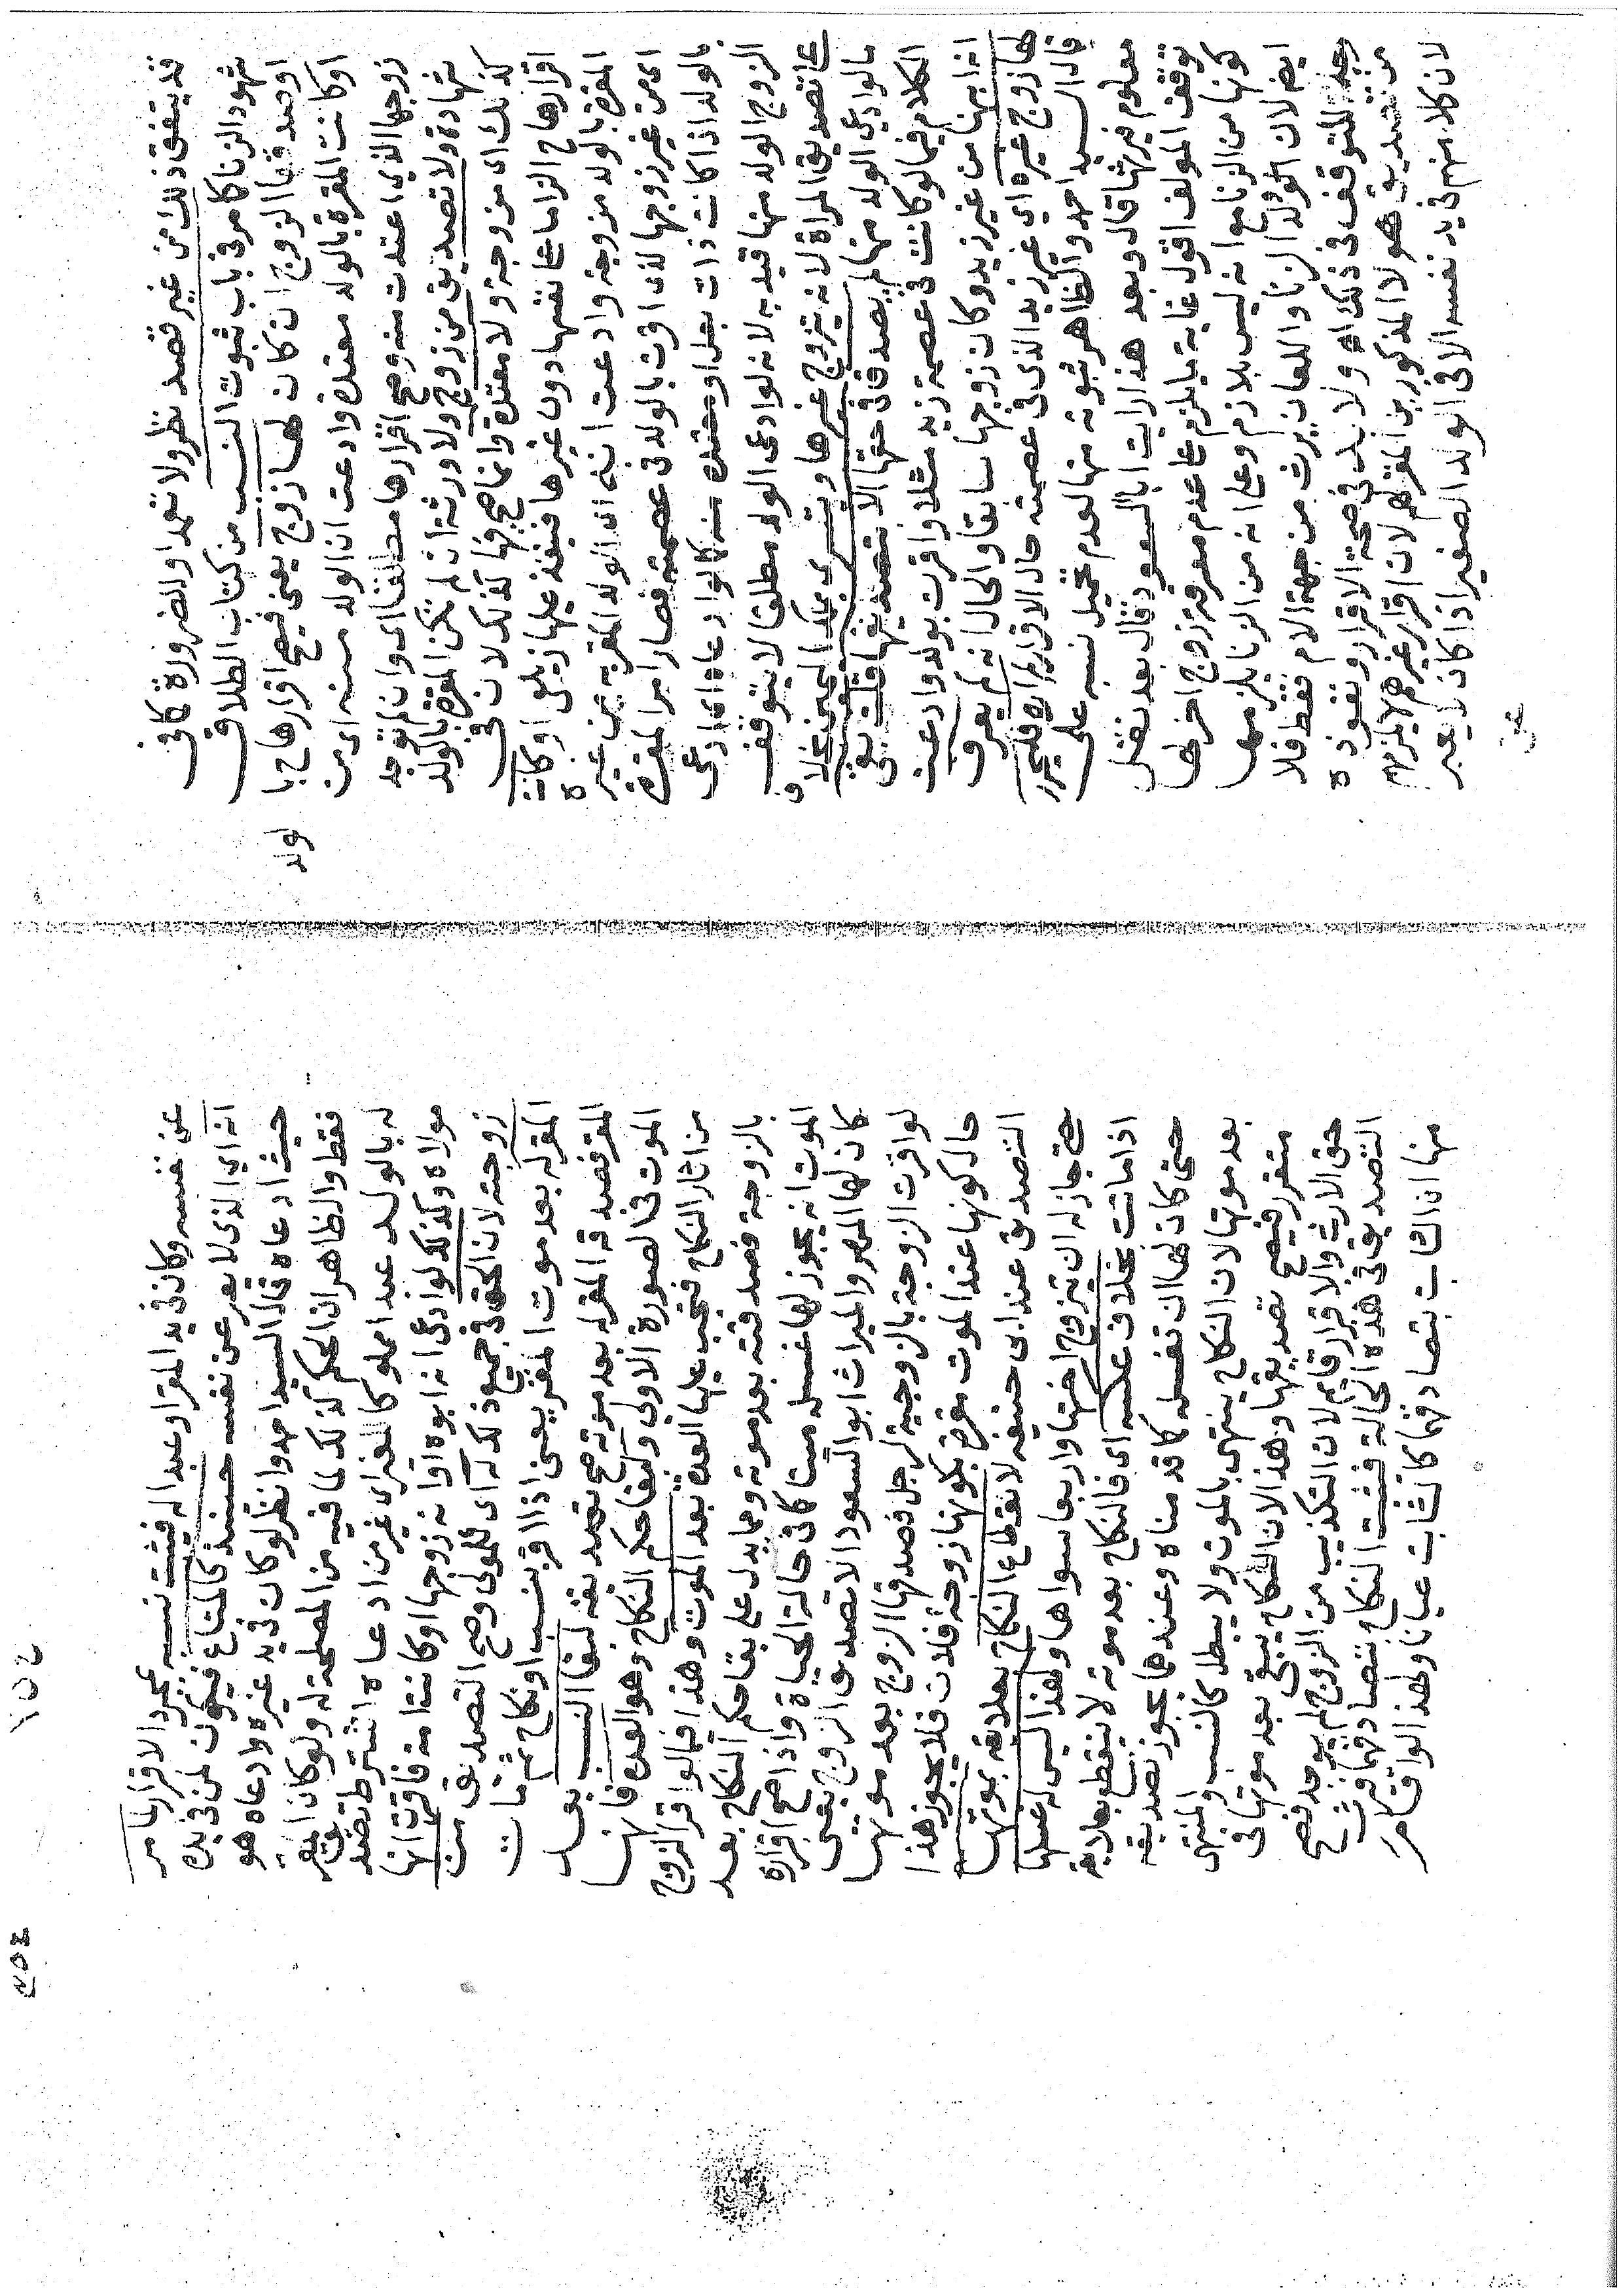 قد يتفق ذلك من غير قصد نظر ولا تعمد او للضرورة كما في
شهود الزنا كما مر في باب ثبوت النسب من كتاب الطلاق
او صدقها الزوج ان كان لها زوج يعني فيصح اقرارها ح با
لولد
او كانت المقرة بالولد معتدة وادعت ان الولد منه اي من
زوجها الذي اعتدت منه وصح اقرارها مطلقا اي وان لم توجد
شهادة ولا تصديق من زوج ولا ورثة ان لم تكن المقرة بالولد
كذلك اي مزوجة ولا معتدة وانما صح فيها كذلك لان في
اقرارها ح الزاما على نفسها دون غيرها فينفذ عليها زيلعي او كانت
المقرة بالولد مزوجة وادعت انه اي الولد المقر به من غيره
اي من غير زوجها لذي اقرت بالولد في عصمته فصار امر المقرة
بالولد اذا كانت ذات بعل او معتدة منه كما لو ادعاه اي ادعى
الزوج الولد منها قيد به لانه لو ادعى الولد مطلقا لا يتوقف
على تصديق المراة لانه يتزوج غيرها ويتسرى بملك اليمين بخلاف
ما لو ادعى الولد منها لم يصدق في حقها الا بتصديقها قلت بقي
الكلام فيما لو كانت في عصمة زيد مثلا واقرت بولد وادعت
انه ابنها من غير زيد وكان زوجها سابقا والحال انه لم يعرف
لها زوج غيره اي غير زيد الذي في عصمته حال الاقرار اه فليحرر
قال السيد احمد والظاهر ثبوته منها لعدم تحميل نسبه على
معلوم فيرثها قال وبعد هذا رايت ابا السعود قال بعد نقل
توقف المولف اقول غاية ما يلزم على عدم معرفة زوج اخر لها
كونها من الزنا مع انه ليس بلازم وعلى انه من الزنا يلزمها
ايضا لان ولد الزنا واللعان يرث من جهة الام فقط فلا
وجه للتوقف في ذلك اه ولا بد في صحة الاقرار ونفوذه
من تصديق هولا المذكورين المقر لهم لان اقرار غيرهم لا يلزمهم
لان كلا منهم في يد نفسه الا في الولد الصغير اذا كان لا يعبر
عن
عن نفسه وكان في يد المقر او عبدا له فيثبت نسبه بمجرد الاقرار كما مر
انه اي الذي لا يعبر عن نفسه حينئذ كالمتاع فيكون لمن في يده
حيث ادعاه قال السيد احمد وانظر لو كان في يد غيره وادعاه هو
فقط والظاهر ان الحكم كذلك لما فيه من المصلحة له ولو كان المقر
له بالولد عبدا مملوكا لغير اي غير من ادعاه اشترط تصديق
مولاه وكذلك لو ادعى انه ابوه او انه زوجها او كانت امة فاقرت انها
زوجته لان الحق في جميع ذلك له اي للمولى وصح التصديق من
المقر له بعد موت المقر يعني اذا اقر بنسب او نكاح ثم مات
المقر فصدقه المقر له بعد موته صح تصديقه لبقا النسب بعد
الموت في الصورة الاولى ولبقا حكم النكاح وهو العدة فانها
من اثار النكاح فتجب عليها العدة بعد الموت وهذا فيما لو اقر الزوج
بالزوجة فصدقته بعد موته ومما يدل على بقا حكم النكاح بعد
الموت انه يجوز لها غسله ميتا كما في حالة الحياة واذا صح اقراره
كان لها المهر والميراث ابو السعود الا تصديق الزوج يعني
لو اقرت الزوجة بالزوجية لرجل فصدقها الزوج بعد موتها
حال كونها عند الموت مقرة بكونها زوجة فلان فلا يجوز هذا
التصديق عند ابي حنيفة لانقطاع النكاح بعلايقه بموتها
حتى جاز له ان يتزوج اختها واربعا سواها ولهذا ليس له غسلها
اذا ماتت بخلاف عكسه اي فالنكاح بعد موته لا ينقطع بعلايقه
حتى كان لها ان تغسله كما قدمناه وعندهما يجوز تصديقه
بعد موتها لان النكاح ينتهي بالموت ولا يبطل كالنسب والمنتهى
متقرر فيصح تصديقها وهذا لان النكاح يبقى بعد موتها في
حق الارث والاقرار قايم لان التكذيب من الزوج لم يوجد فصح
التصديق في هذه الحالة فثبت النكاح بتصادقهما فيرث
منها اذ الثابت بتصادقهما كالثابت عيانا ولهذا لو اقام